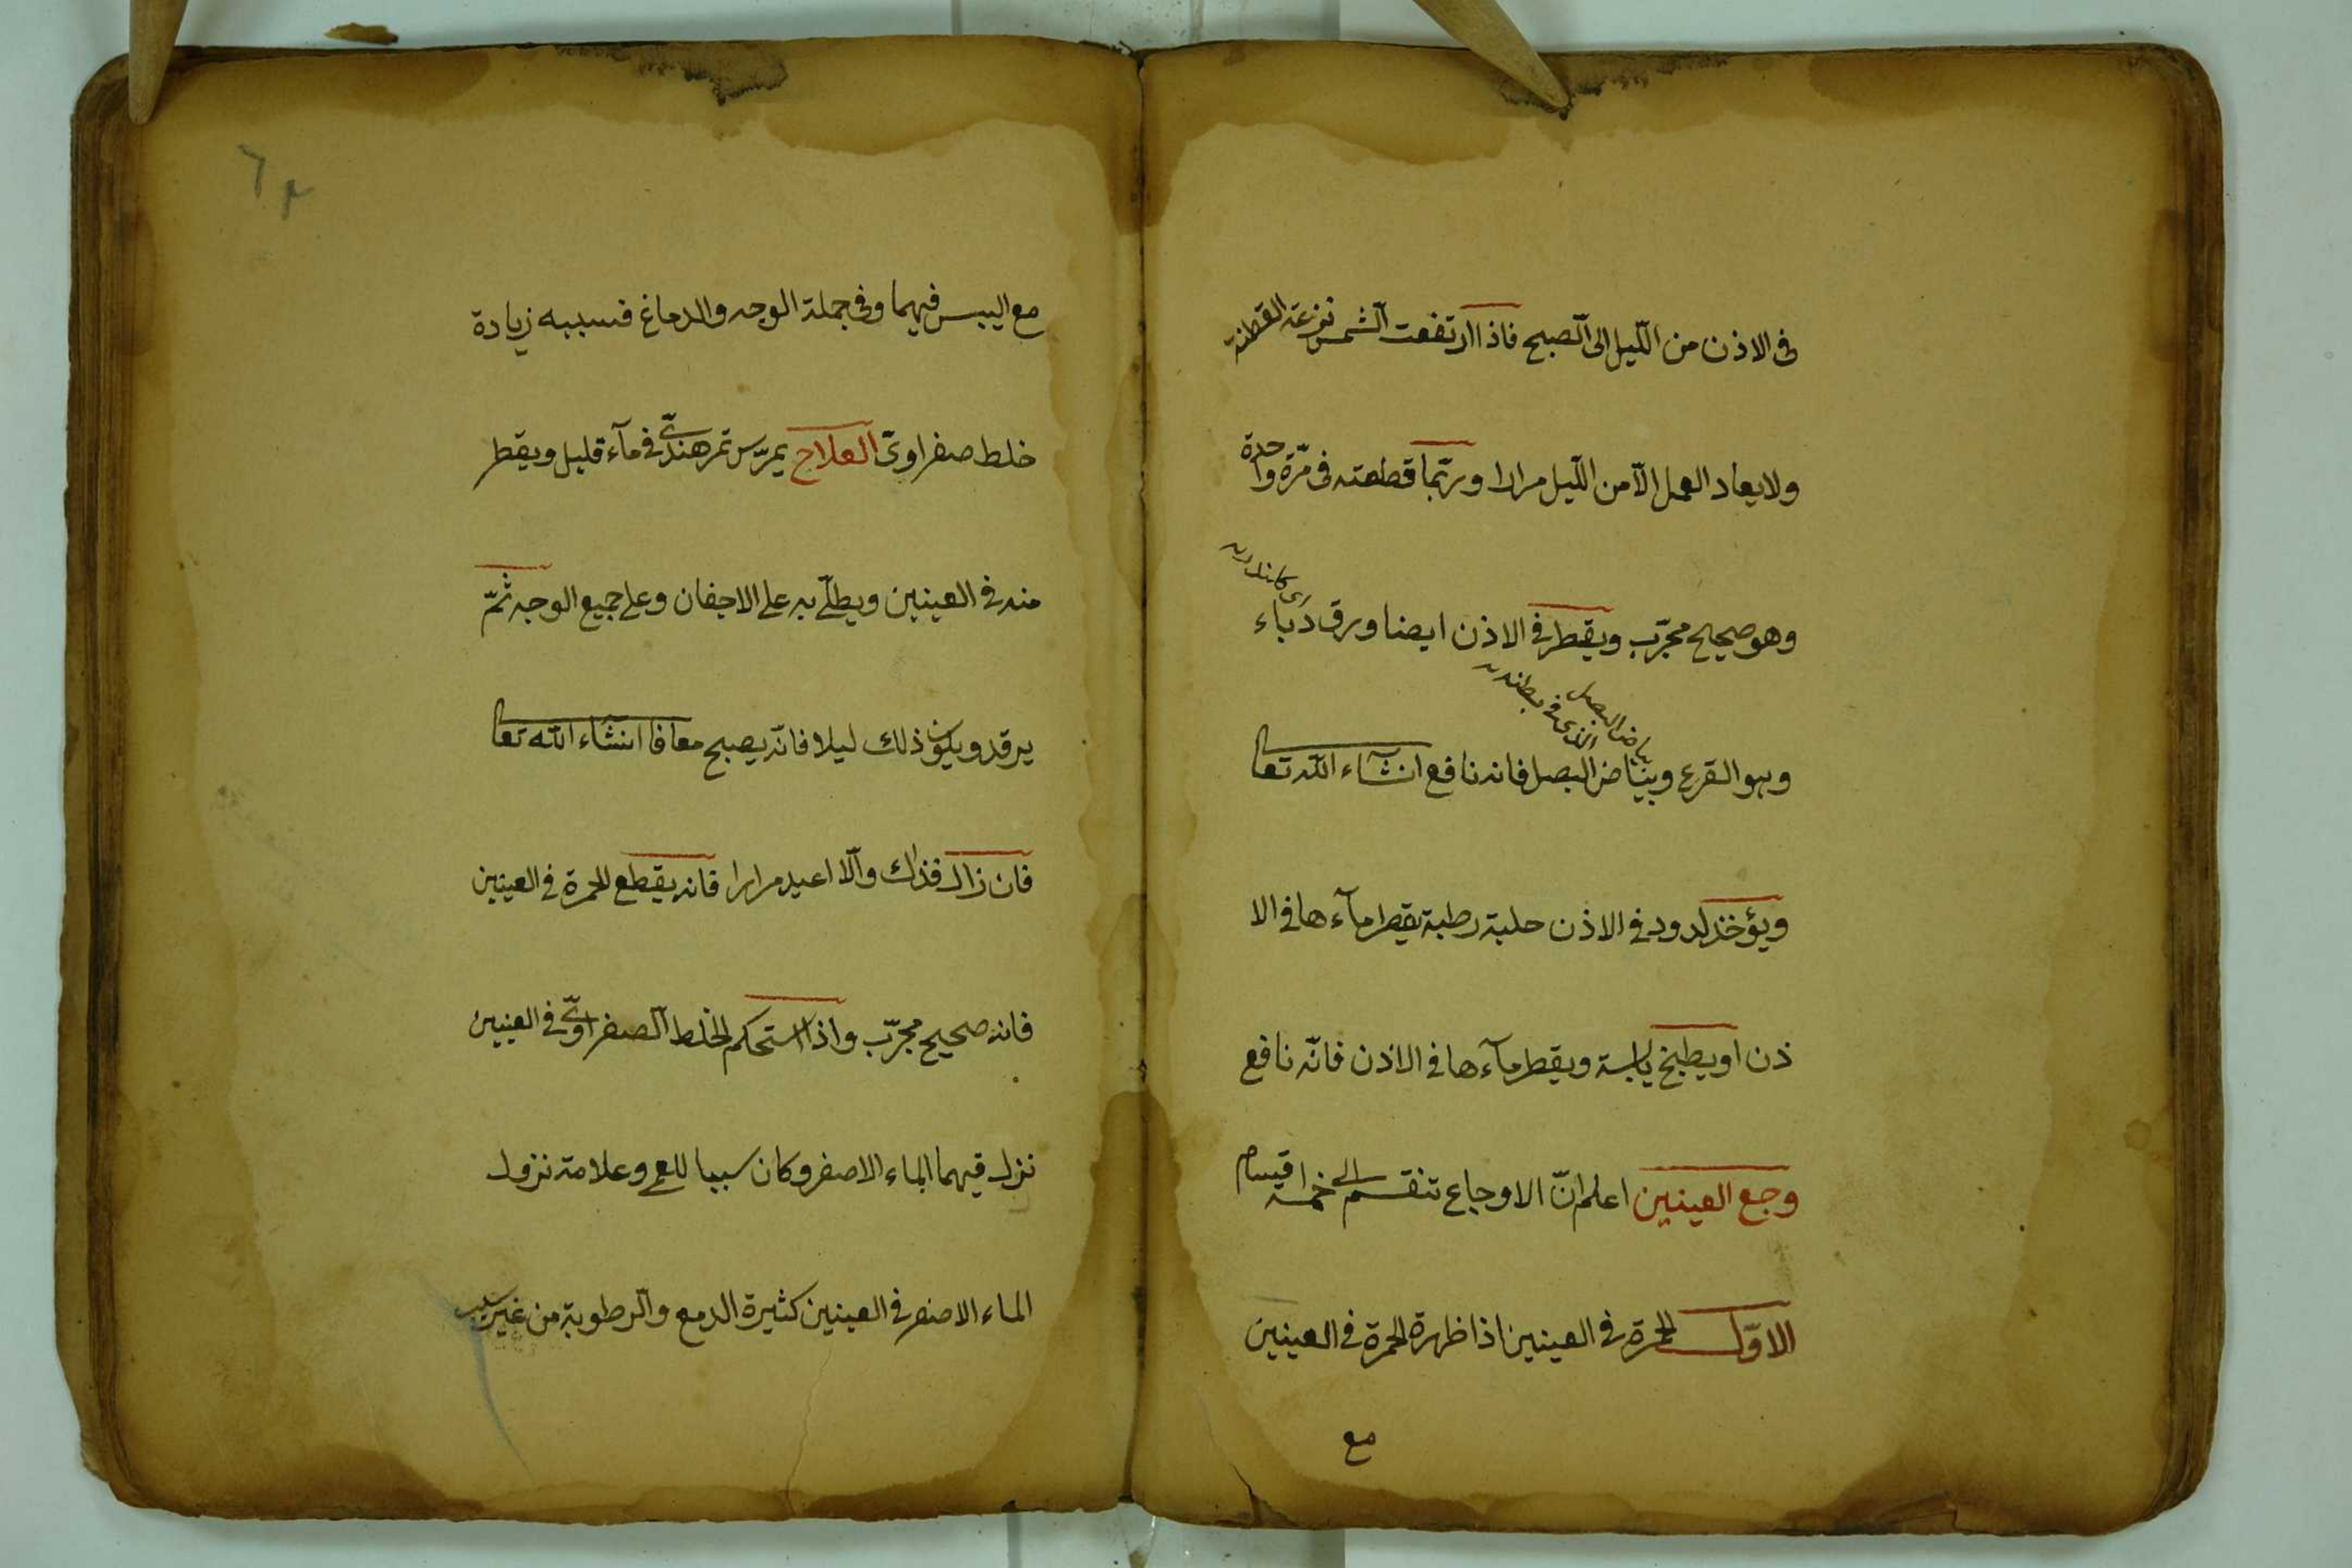 فى الاذن من الّليل الى الّصبح فاذا ارتفعت الشّمس نزعة القطنة
ولا يعاد العمل الّا من الّليل مرارا وربّما قطعته فى مرّة واحدة
وهو صحيح مجرّب ويقطر فى الاذن ايضا ورق دباء
وهو القرع وبياض البصل فانه نافع انشآء الله تعا
بياض البصل الذى فى بطنه
ويؤخذ لدود فى الاذن حلبة رطبة يقطر مآءها فى الا
ذن او يطبخ يابسة ويقطر مآءها فى الاذن فانّه نافع
وجع العينين اعلم انّ الاوجاع تنقسم الى خمسة اقسام
الاوّل الحمرة فى العينين اذا ظهرة الحمرة فى العينين
مع
مع اليبس فيهما وفى جملة الوجه والدماغ فسببه زيادة
خلط صفراوىّ العلاج يمرّس تمر هندىّ فى مآء قليل ويقطر
منه فى العينين ويطلى به على الاجفان وعلى جميع الوجه ثمّ
يرقد ويكون ذلك ليلا فانّه يصبح معافا انشاء الله تعا
فان زال فذاك والّا اعيد مرارا فانه يقطع الحمرة فى العينين
فانه صحيح مجرّب واذا استحكم الخلط الصفراوىّ فى العينين
نزل فيهما الماء الاصفر وكان سببا للعمى وعلامة نزول
الماء الاصفر فى العينين كثيرة الدمع والرطوبة من غير سبب